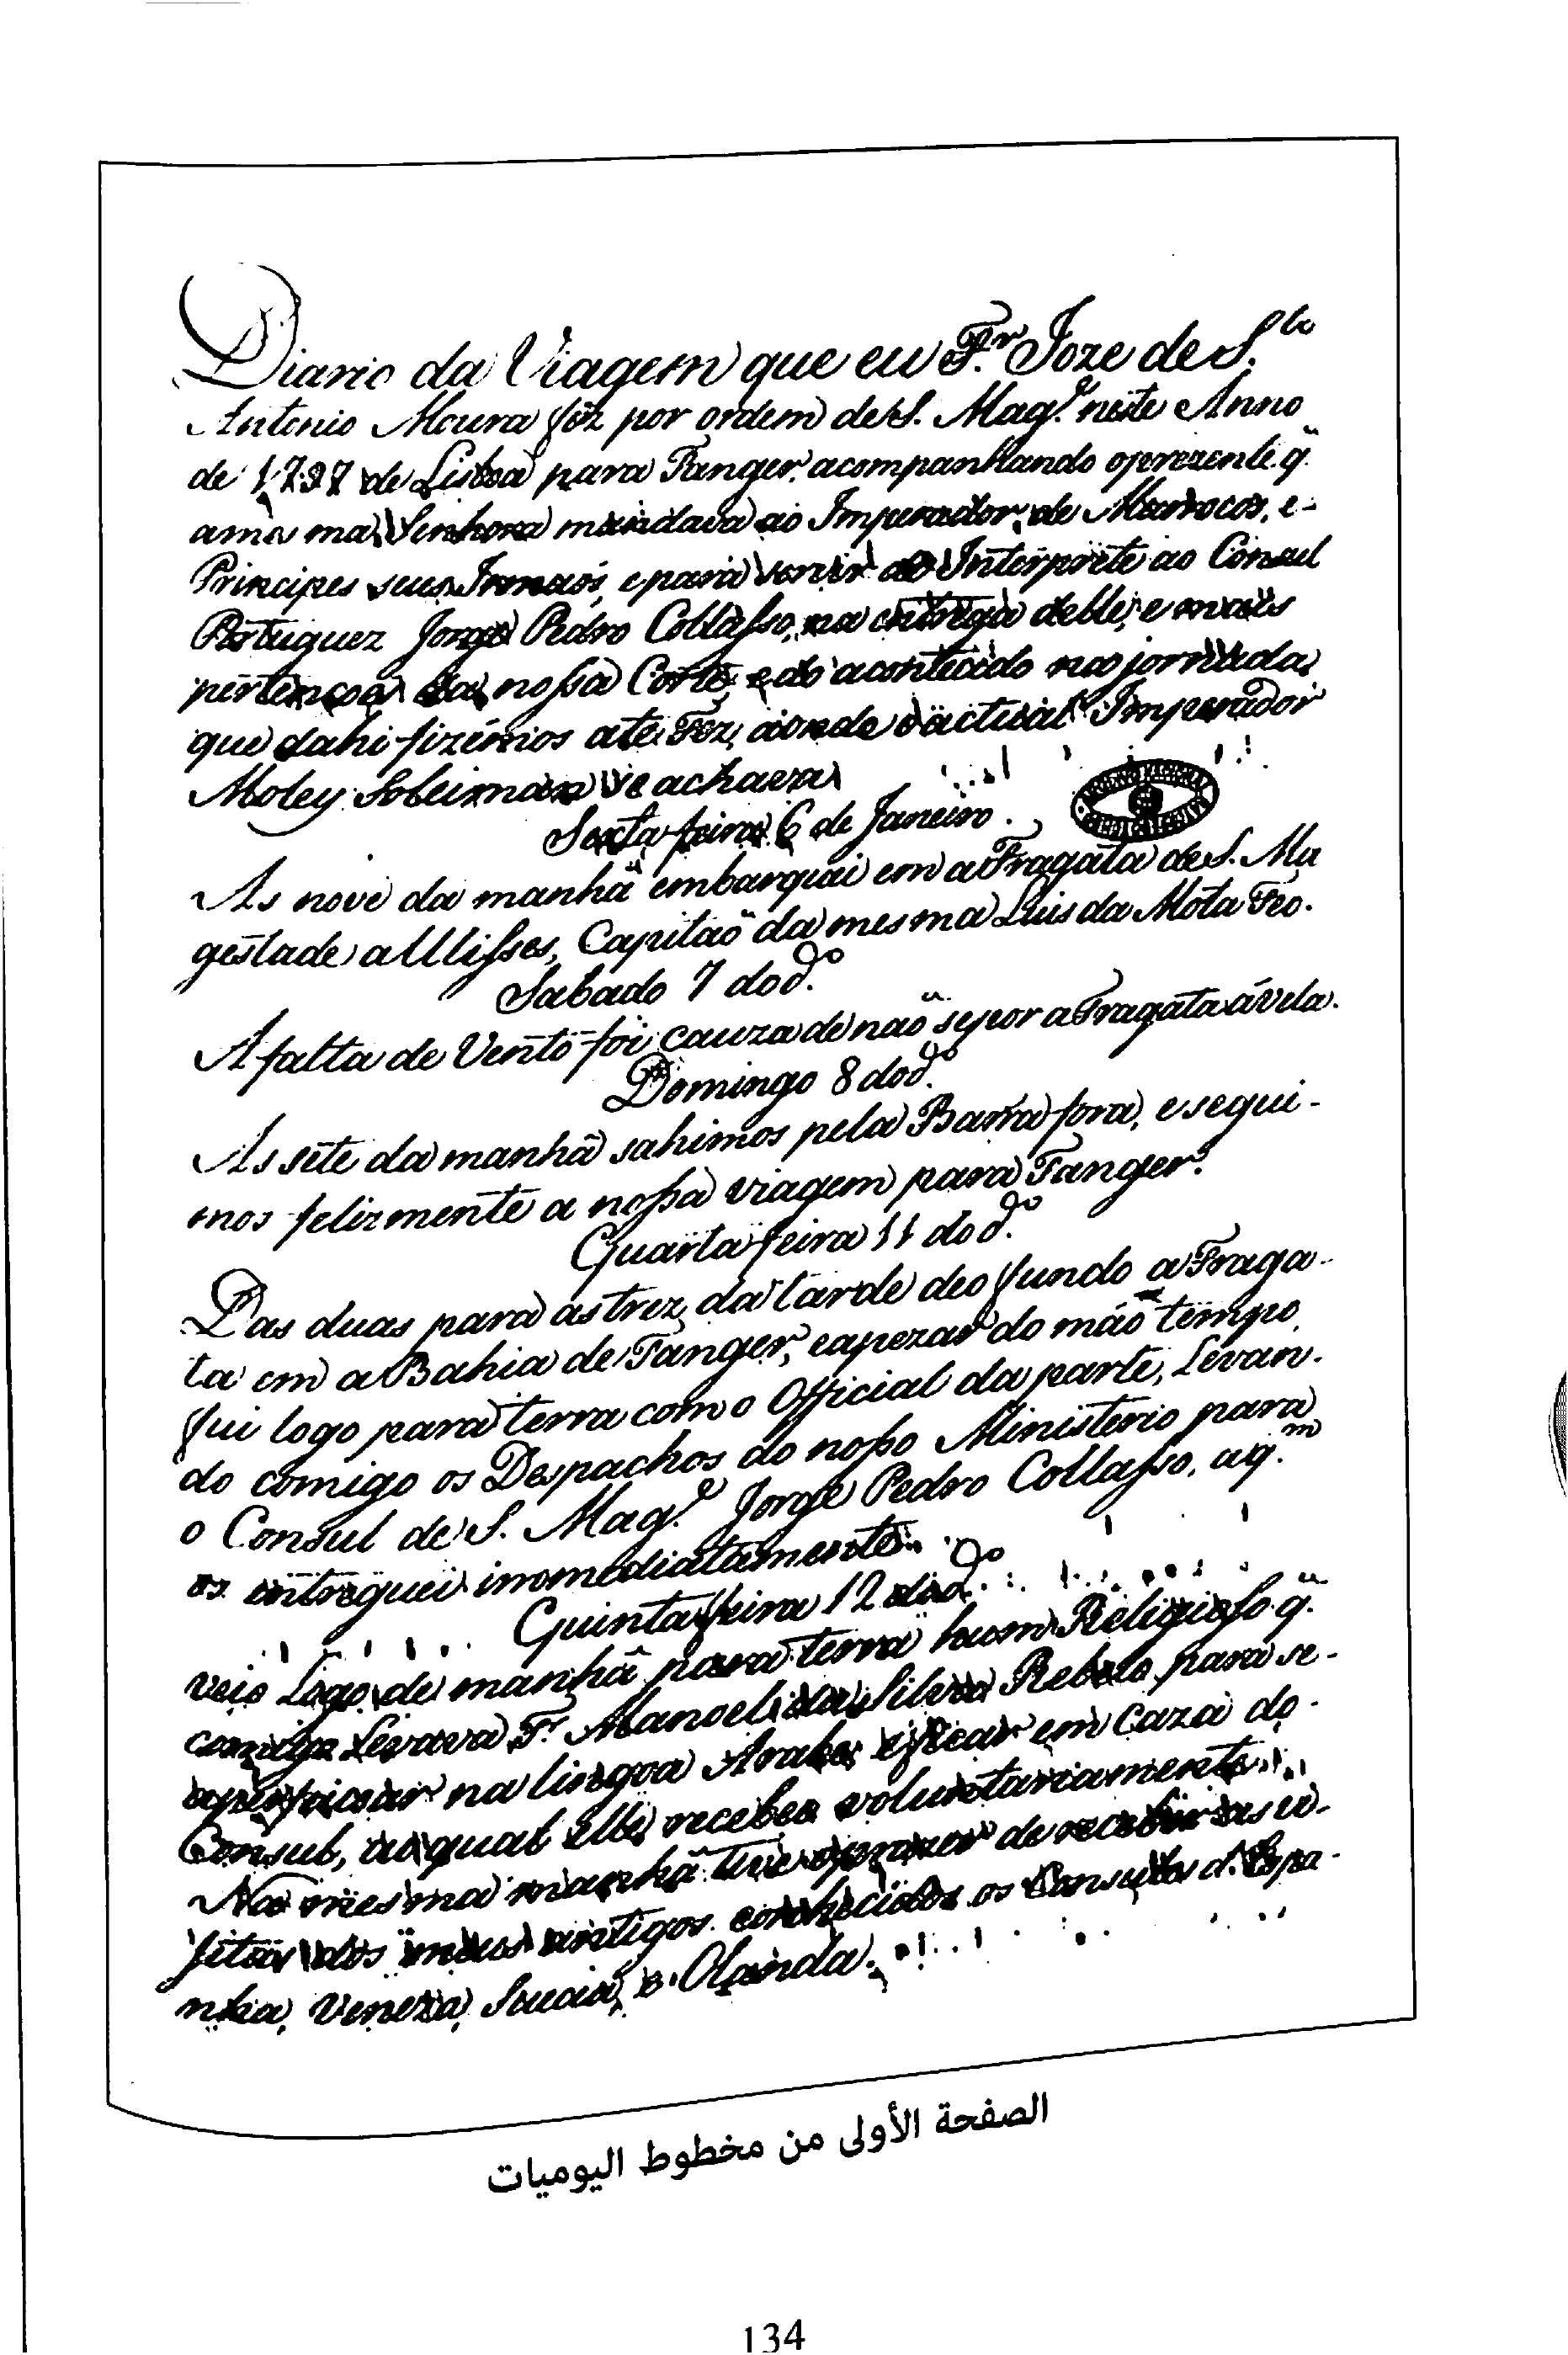 Diario da Viagem que eu Fr. Joze de S.to
Antonio Moura fêz por ordem de S. Mag.e neste Anno
de 1797 de Lisboa para Tanger, acompanhando oprezente q̃.
a ma Senhora mandava ao Imperador de Marrocos, e
Principes seus Irmaõs, epara servir de Interprete ao Consul
Portuguez Jorge Pedro Collasso, na entrega delle, e mais
da nossa Corte, edo acontecido na jornada,
que dahi fizémos até Féz, aonde o actual Imperador
Moley Soleiman se achava
Sexta feira 6 de Janeiro.
As nove da manhã embarquei em a Fragata de S. Ma
gestade a Ulisses, Capitaõ da mesma Luis da Mota Feo.
Sabado 7 do d.o
A falta de Vento foi cauza de naõ se por a Fragata á vela.
Domingo 8 do d.o
As sete da manhã sahimos pela Barra fora, e segui-
mos felizmente a nossa viagem para Tanger.
Quarta feira 11 do d.o
Das duas para as trez da tarde deo fundo a Fraga-
ta em a Bahia de Tanger, eapezar do máo tempo,
fui logo para terra com o Official da parte, Levan-
do comigo os Despachos do nosso Ministerio para
o Consul de S. Mag.e Jorge Pedro Collasso, aq.m
os entreguei immediatamente.
Quinta feira 12 do d.o
veio Logo de manhã para terra hum Religioso q̃.
comigo Levava Fr. Manoel da Silva Rebelo para se
aperfeicoar na lingoa Arabe, e ficar em Caza do
Consul, ao qual elle recebeo voluntariamente.
Na mesma manhã tive oprazer de receber as vi-
sitas dos meus antigos conhecidos os Consules d'Espa-
nha, Veneza, Suecia, e Olanda.
الصفحة الأولى من مخطوط اليوميات
134